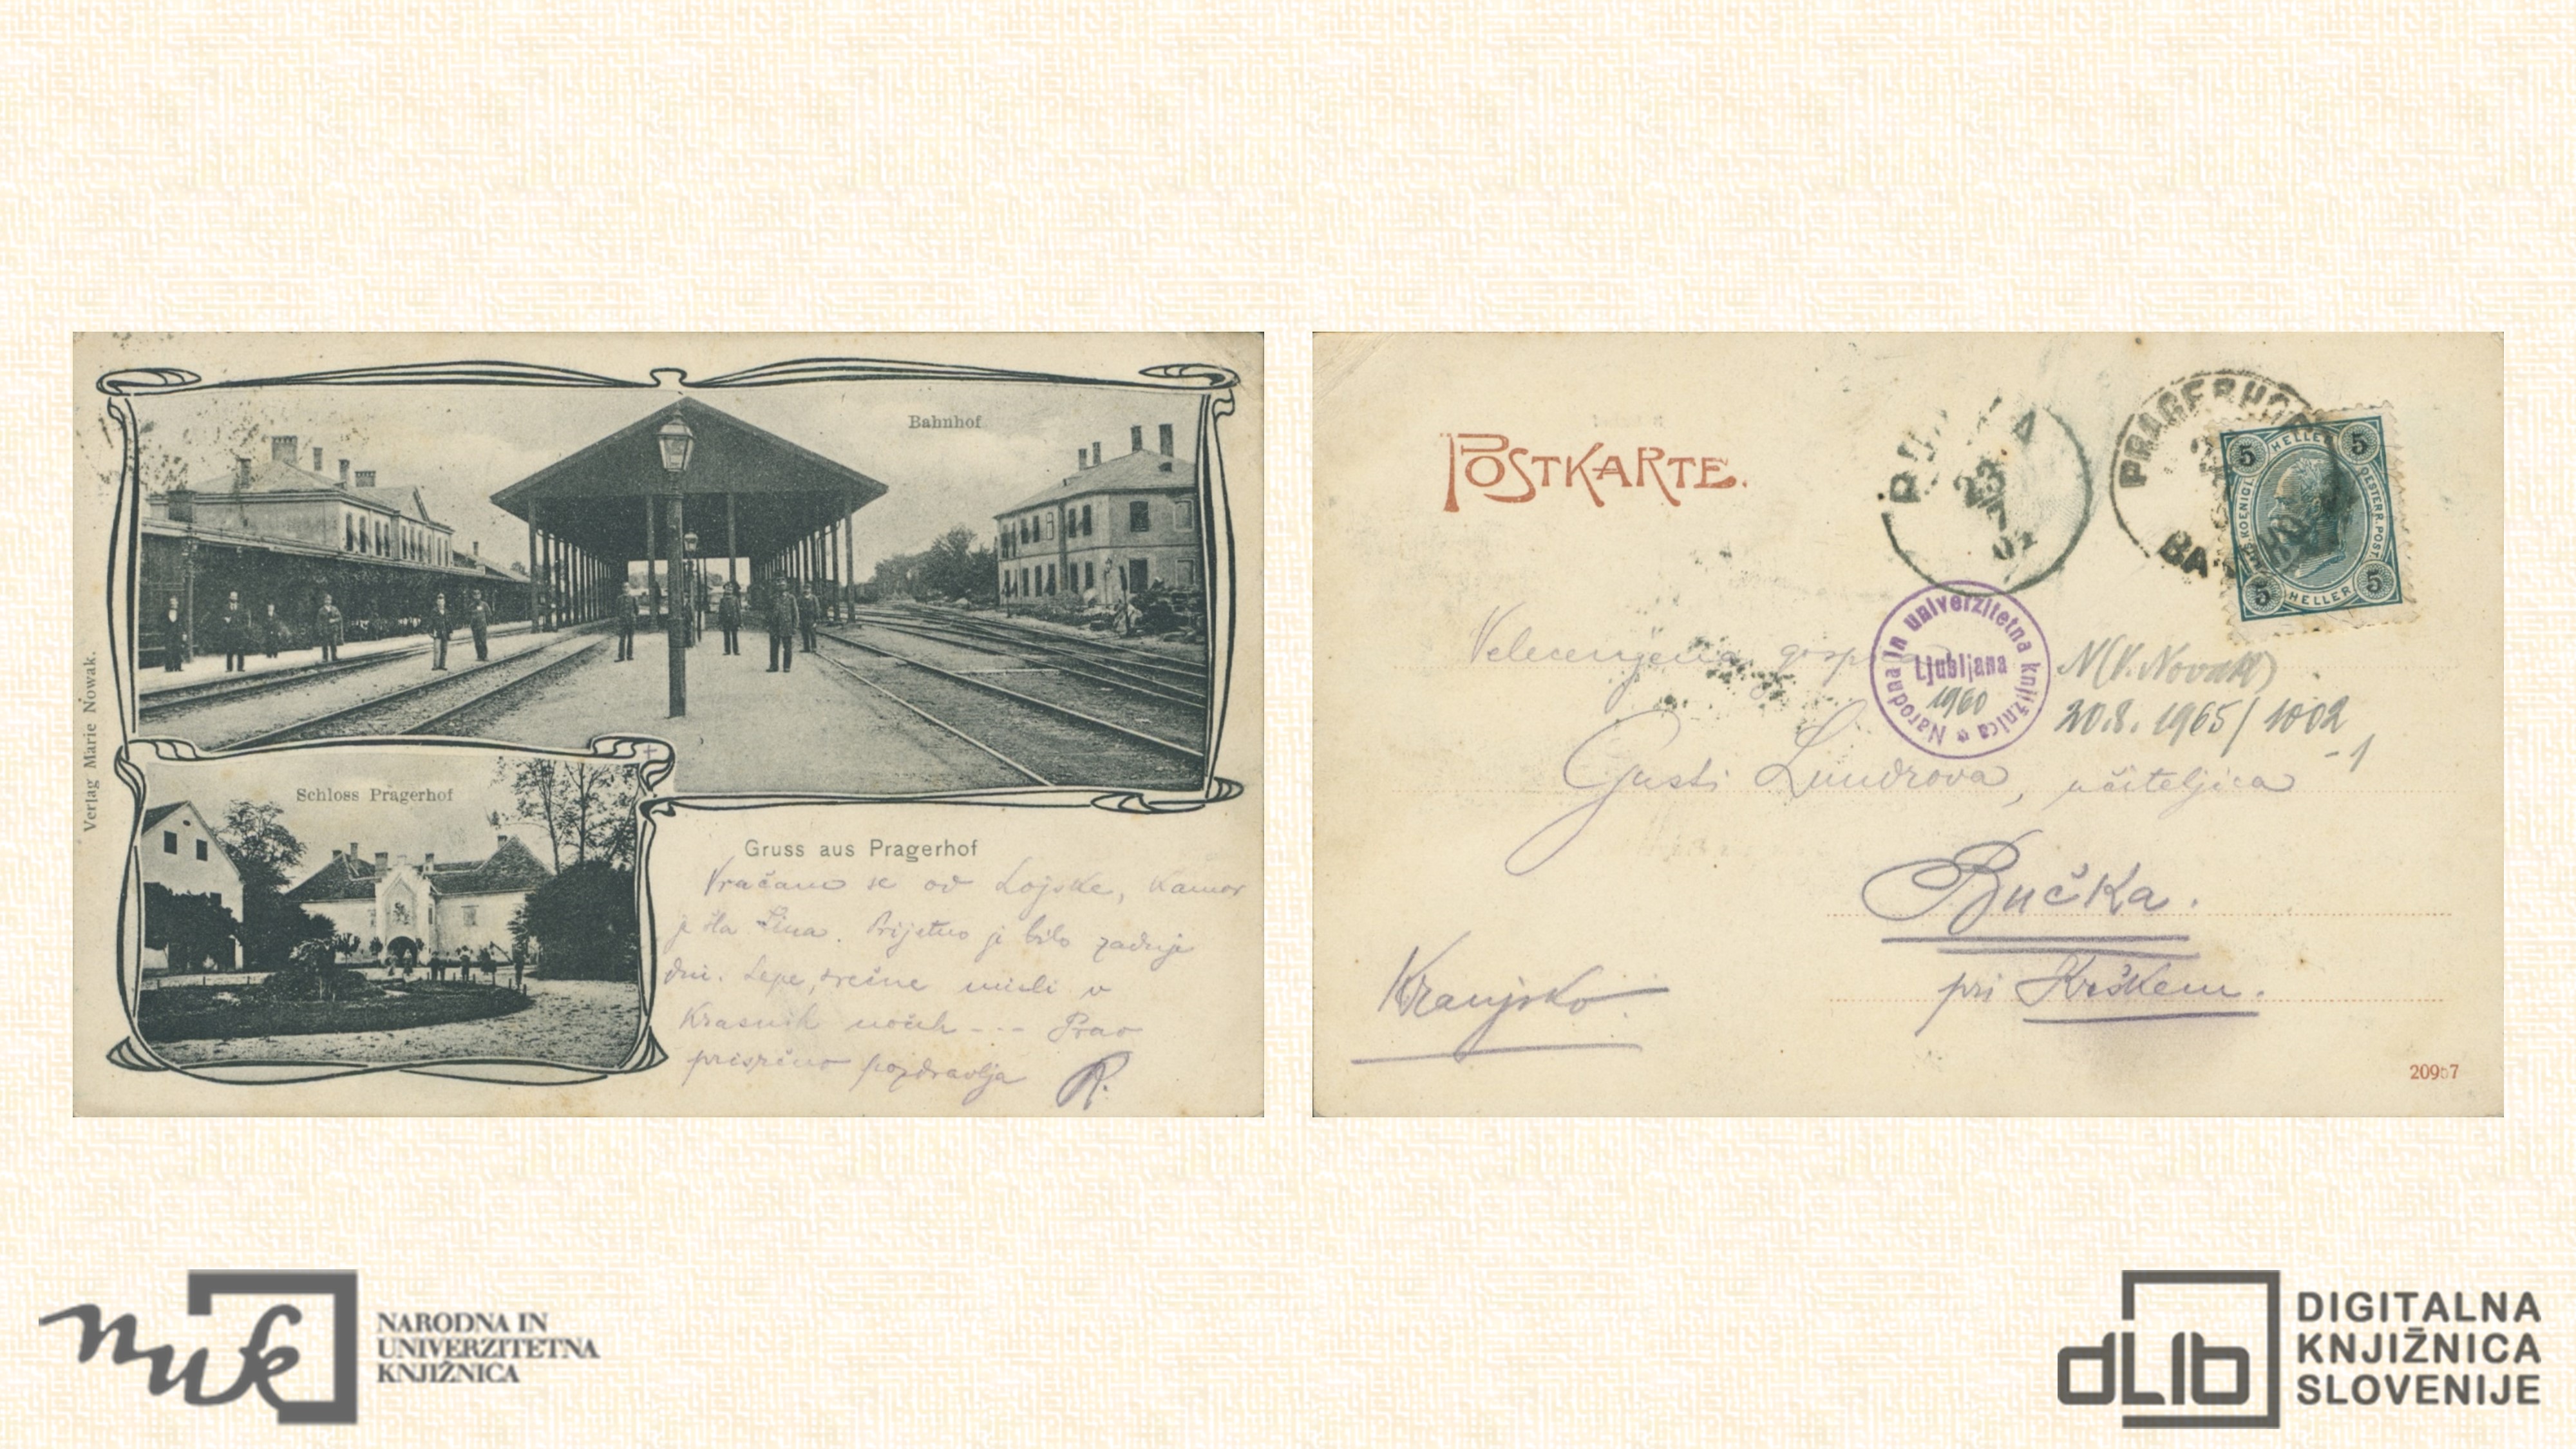 Bahnhof
Verlag Marie Nowak.
Schloss Pragerhof
Gruss aus Pragerhof
Vračamo se od Lojske, kamor
je šla Lina. Prijetno je bilo zadnje
dni. Lepe, srečne misli v
krasnih nočeh --- Prav
prisrčno pozdravlja R.
POSTKARTE.
23
7
PRAGERHOF
BAHNHOF
5 HELLER 5
OESTERR. POST.
5 HELLER 5
Velecenjena gosp
Narodna in univerzitetna knjižnica
Ljubljana
1960
N(V. Novak)
20.8.1965/1002
-1
Gusti, učiteljica
Bučka.
pri Krškem.
Kranjsko.
209 7
nuk
NARODNA IN
UNIVERZITETNA
KNJIŽNICA
dLib
DIGITALNA
KNJIŽNICA
SLOVENIJE